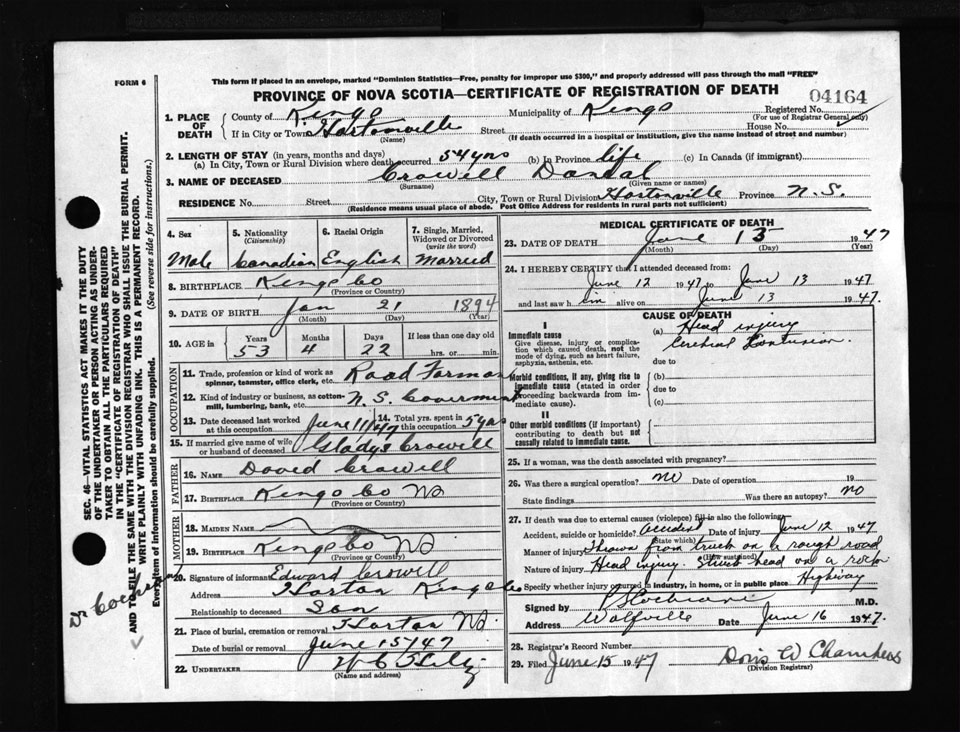 FORM 6
This form if placed in an envelope, marked "Dominion Statistics—Free, penalty for improper use $300," and properly addressed will pass through the mail "FREE"
PROVINCE OF NOVA SCOTIA—CERTIFICATE OF REGISTRATION OF DEATH
04164
1. PLACE OF DEATH County of Kings Municipality of Kings Registered No.
(For use of Registrar General only)
If in City or Town Hortonville Street House No.
(Name) (If death occurred in a hospital or institution, give the name instead of street and number)
2. LENGTH OF STAY (in years, months and days)
(a) In City, Town or Rural Division where death occurred 54 yrs (b) In Province life (c) In Canada (if immigrant)
3. NAME OF DECEASED Crowell
(Surname) (Given name or names)
RESIDENCE No. Street City, Town or Rural Division Hortonville Province N.S.
(Residence means usual place of abode. Post Office Address for residents in rural parts not sufficient)
4. Sex 5. Nationality (Citizenship) 6. Racial Origin 7. Single, Married, Widowed or Divorced (write the word)
Male Canadian English Married
8. BIRTHPLACE Kings Co
(Province or Country)
9. DATE OF BIRTH Jan 21 1894
(Month) (Day) (Year)
10. AGE in Years Months Days If less than one day old
53 4 22 hrs. or min.
OCCUPATION
11. Trade, profession or kind of work as spinner, teamster, office clerk, etc. Road Forman
12. Kind of industry or business, as cotton-mill, lumbering, bank, etc. N.S. Government
13. Date deceased last worked at this occupation June 11/47 14. Total yrs. spent in this occupation 5 yrs
15. If married give name of wife or husband of deceased Gladys Crowell
FATHER
16. NAME David Crowell
17. BIRTHPLACE Kings Co NS
MOTHER
18. MAIDEN NAME
19. BIRTHPLACE Kings Co NS
(Province or Country)
20. Signature of informant Edward Crowell
Address Horton Kings Co
Relationship to deceased Son
21. Place of burial, cremation or removal Horton NS
Date of burial or removal June 15/47
22. UNDERTAKER
(Name and address)
MEDICAL CERTIFICATE OF DEATH
23. DATE OF DEATH June 13 1947
(Month) (Day) (Year)
24. I HEREBY CERTIFY that I attended deceased from:
June 12 1947 to June 13 1947
and last saw h im alive on June 13 1947.
CAUSE OF DEATH
I
Immediate cause
Give disease, injury or complication which caused death, not the mode of dying, such as heart failure, asphyxia, asthenia, etc.
(a) Head injury
Cerebral Contusion.
due to
Morbid conditions, if any, giving rise to immediate cause (stated in order proceeding backwards from immediate cause).
(b)
due to
(c)
II
Other morbid conditions (if important) contributing to death but not causally related to immediate cause.
25. If a woman, was the death associated with pregnancy?
26. Was there a surgical operation? no Date of operation 19
State findings Was there an autopsy? no
27. If death was due to external causes (violence) fill in also the following:
Accident, suicide or homicide? Accident Date of injury June 12 1947
(State which)
Manner of injury Thrown from truck on a rough road
(How sustained)
Nature of injury Head injury. Struck head on a rock
Specify whether injury occurred in industry, in home, or in public place Highway
Signed by Cochrane M.D.
Address Wolfville Date June 16 1947.
28. Registrar's Record Number
29. Filed June 15 1947 Doris W Chambers
(Division Registrar)
SEC. 46—VITAL STATISTICS ACT MAKES IT THE DUTY
OF THE UNDERTAKER OR PERSON ACTING AS UNDER-
TAKER TO OBTAIN ALL THE PARTICULARS REQUIRED
IN THE "CERTIFICATE OF REGISTRATION OF DEATH"
AND TO FILE THE SAME WITH THE DIVISION REGISTRAR WHO SHALL ISSUE THE BURIAL PERMIT.
WRITE PLAINLY WITH UNFADING INK. THIS IS A PERMANENT RECORD.
Every item of information should be carefully supplied. (See reverse side for instructions.)